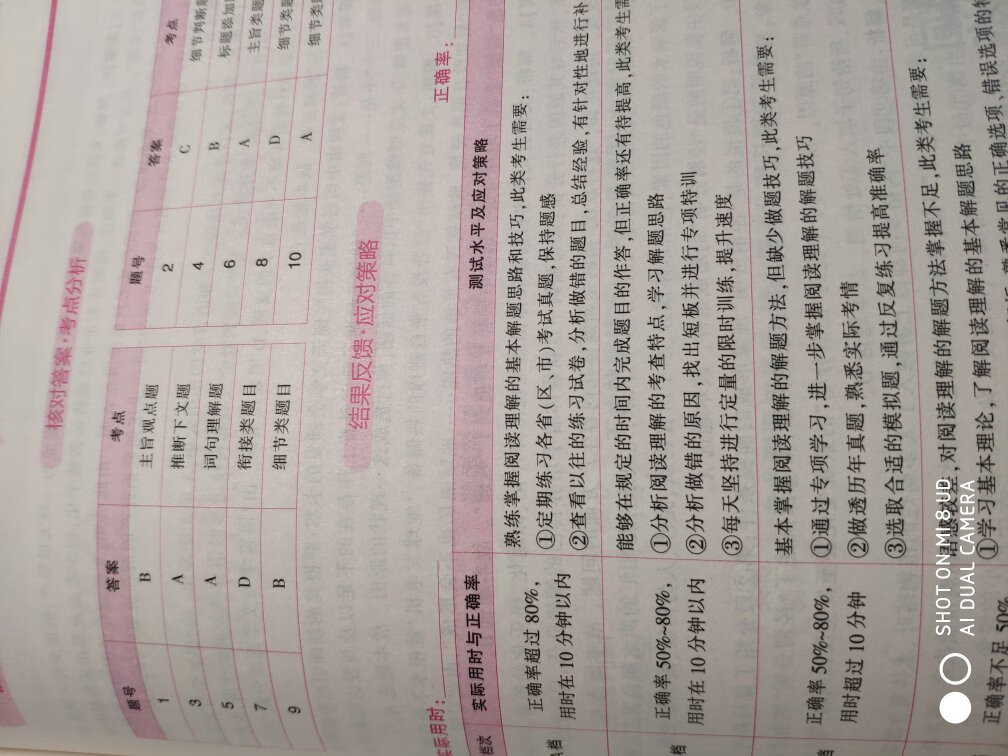 核对答案·考点分析
题号 答案 考点 题号 答案 考点
1 B 主旨观点题 2 C 细节判断
3 A 推断下文题 4 B 标题添加
5 A 词句理解题 6 A 主旨类题
7 D 衔接类题目 8 D 细节类题
9 B 细节类题目 10 A 细节类
结果反馈·应对策略
实际用时： 正确率：
档次 实际用时与正确率 测试水平及应对策略
正确率超过 80%，
用时在 10 分钟以内
熟练掌握阅读理解的基本解题思路和技巧，此类考生需要：
①定期练习各省（区、市）考试真题，保持题感
②查看以往的练习试卷，分析做错的题目，总结经验，有针对性地进行补
档
正确率 50%~80%，
用时在 10 分钟以内
能够在规定的时间内完成题目的作答，但正确率还有待提高，此类考生需
①分析阅读理解的考查特点，学习解题思路
②分析做错的原因，找出短板并进行专项特训
③每天坚持进行定量的限时训练，提升速度
档
正确率 50%~80%，
用时超过 10 分钟
基本掌握阅读理解的解题方法，但缺少做题技巧，此类考生需要：
①通过专项学习，进一步掌握阅读理解的解题技巧
②做透历年真题，熟悉实际考情
③选取合适的模拟题，通过反复练习提高准确率
档
正确率不足 50%
较差，对阅读理解的解题方法掌握不足，此类考生需要：
①学习基本理论，了解阅读理解的基本解题思路
常见的正确选项、错误选项的特
SHOT ON MI 8 UD
AI DUAL CAMERA